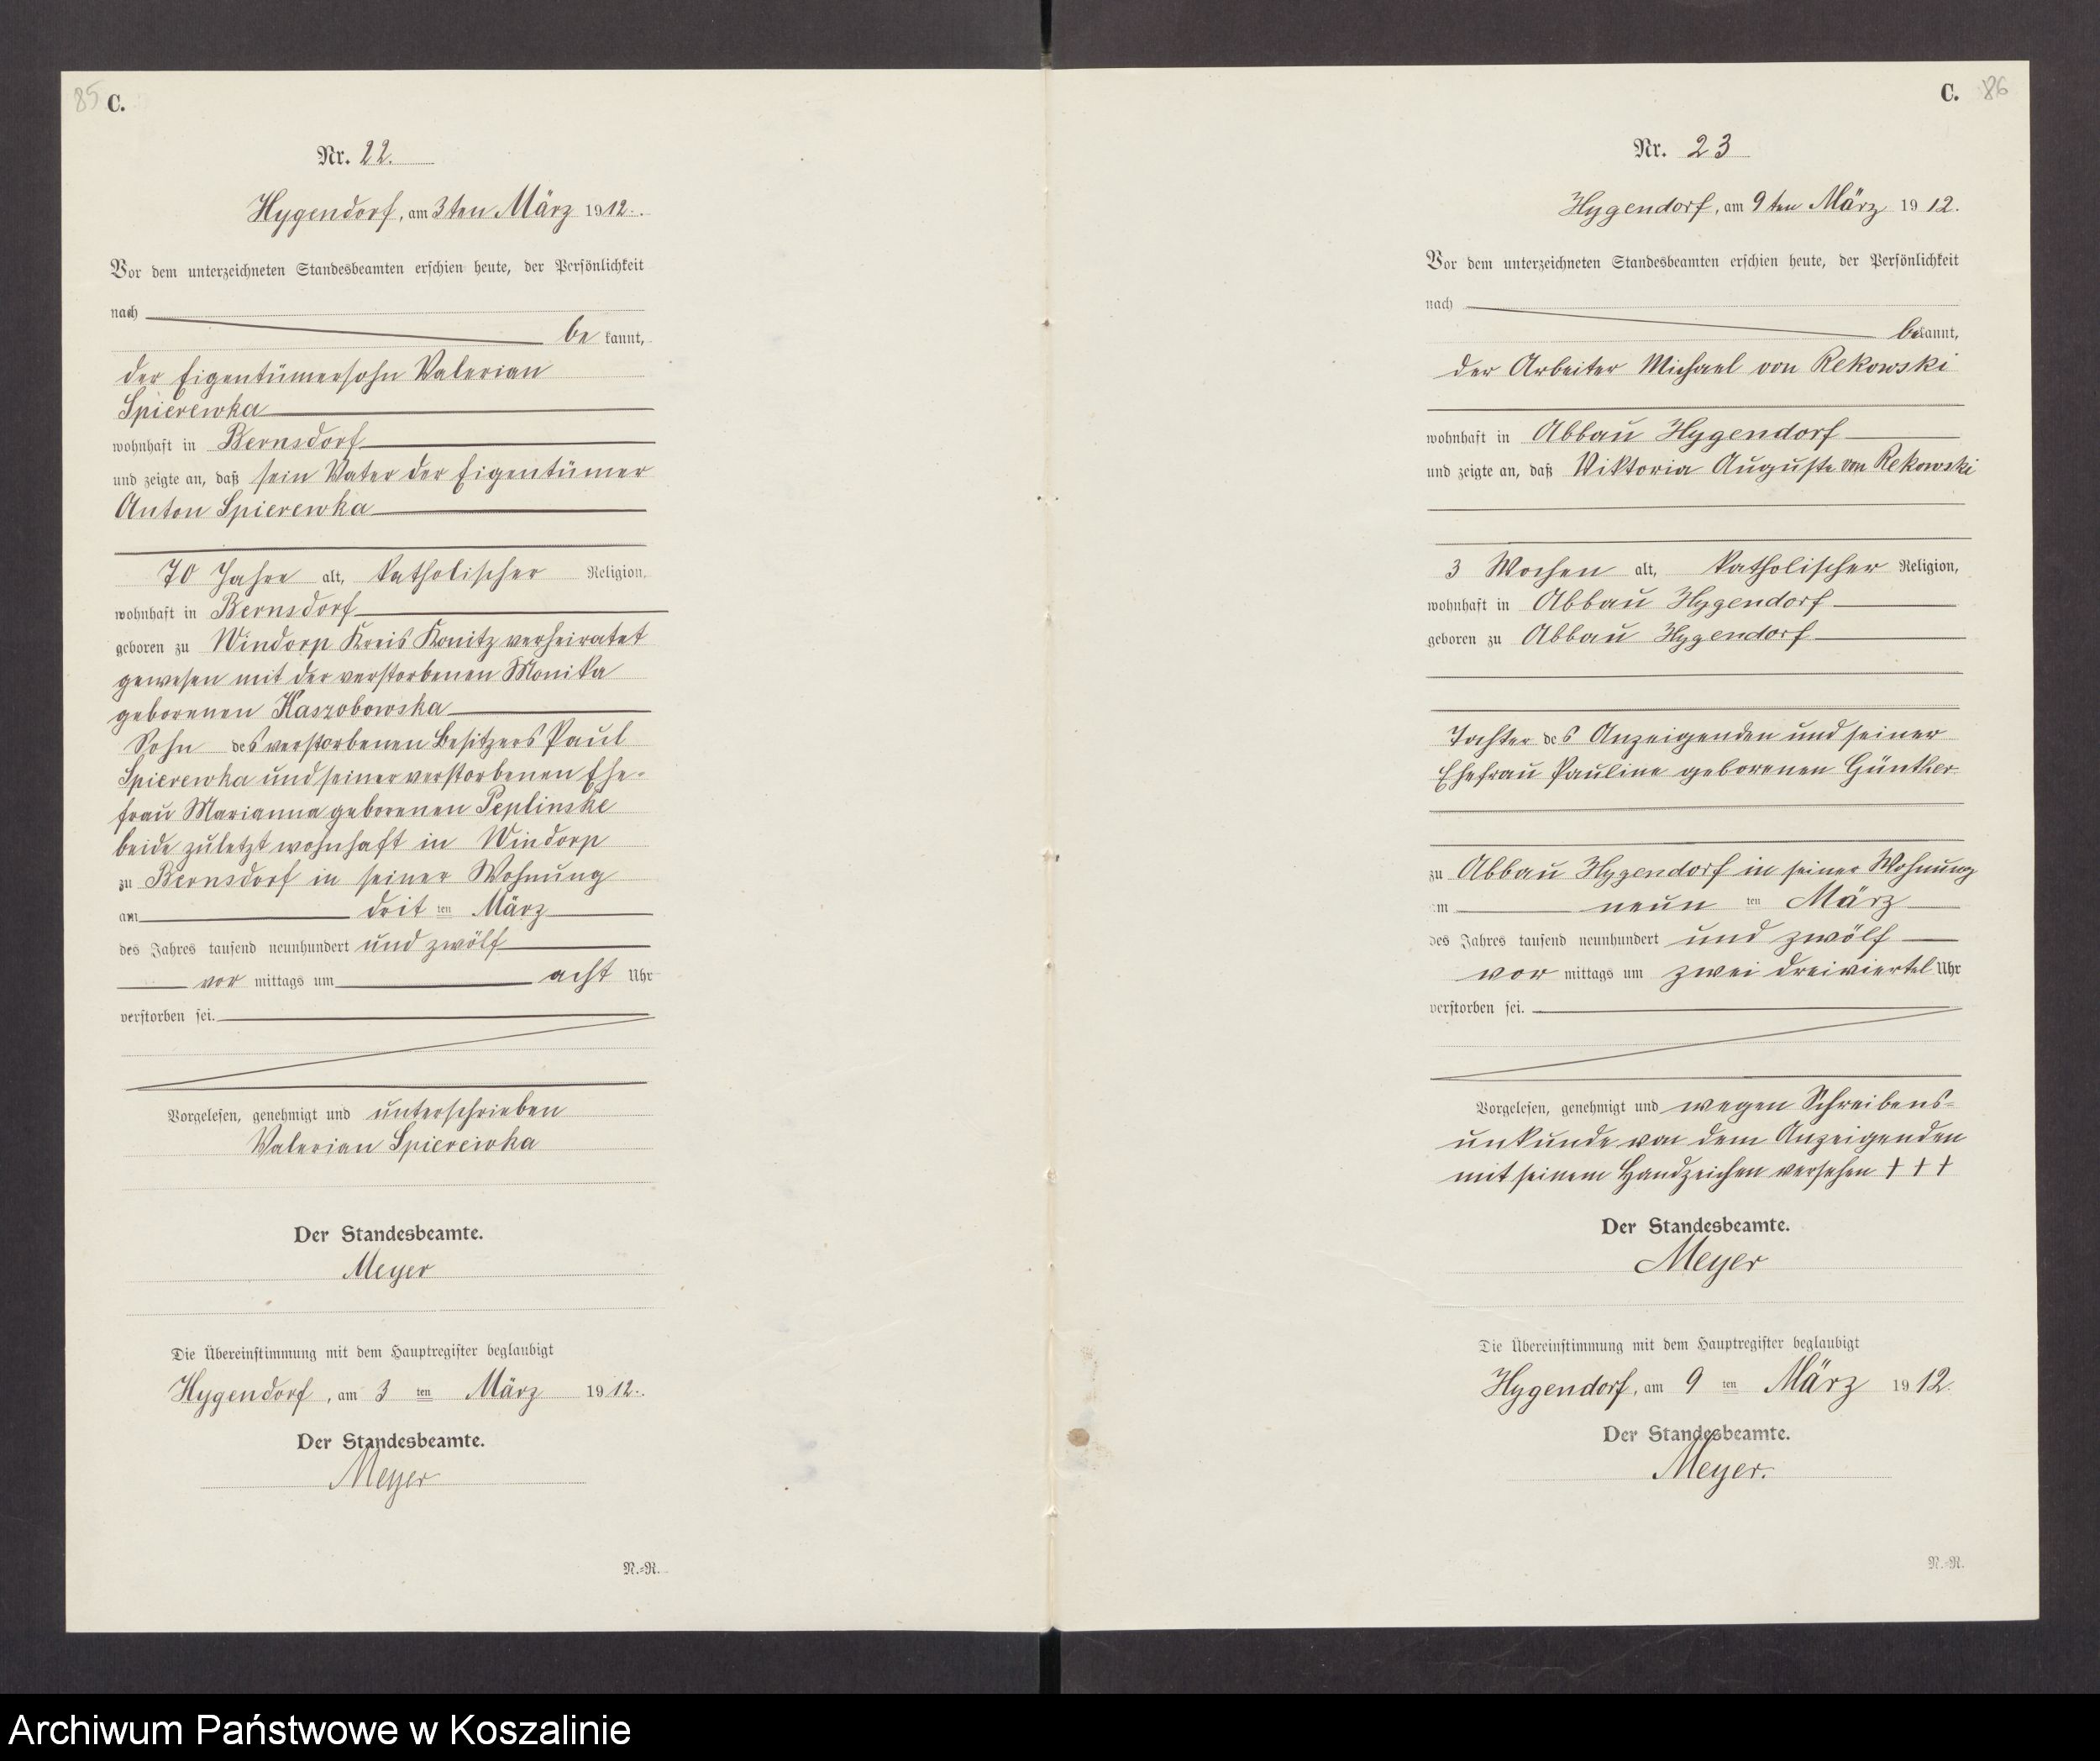 85 C.
Nr. 22.
Hygendorf, am 3ten März 1912.
Vor dem unterzeichneten Standesbeamten erschien heute, der Persönlichkeit
nach
be kannt,
der Eigentümersohn Valerian
Spierewka
wohnhaft in Bernsdorf
und zeigte an, daß sein Vater der Eigentümer
Anton Spierewka
70 Jahre alt, katholischer Religion,
wohnhaft in Bernsdorf
geboren zu Windorp Kreis Konitz verheiratet
gewesen mit der verstorbenen Monika
geborenen Kaszobowska
Sohn des verstorbenen Besitzers Paul
Spierewka und seiner verstorbenen Ehe-
frau Marianna geborenen Peplinske
beide zuletzt wohnhaft in Windorp
zu Bernsdorf in seiner Wohnung
am drit ten März
des Jahres tausend neunhundert und zwölf
vor mittags um acht Uhr
verstorben sei.
Vorgelesen, genehmigt und unterschrieben
Valerian Spierewka
Der Standesbeamte.
Meyer
Die Übereinstimmung mit dem Hauptregister beglaubigt
Hygendorf, am 3 ten März 1912.
Der Standesbeamte.
Meyer
N.-R.
C. 86
Nr. 23
Hygendorf, am 9ten März 1912.
Vor dem unterzeichneten Standesbeamten erschien heute, der Persönlichkeit
nach
bekannt,
der Arbeiter Michael von Rekowski
wohnhaft in Abbau Hygendorf
und zeigte an, daß Viktoria Auguste von Rekowski
3 Wochen alt, katholischer Religion,
wohnhaft in Abbau Hygendorf
geboren zu Abbau Hygendorf
Tochter des Anzeigenden und seiner
Ehefrau Pauline geborenen Günther
zu Abbau Hygendorf in seiner Wohnung
am neun ten März
des Jahres tausend neunhundert und zwölf
vor mittags um zwei dreiviertel Uhr
verstorben sei.
Vorgelesen, genehmigt und wegen Schreibens-
unkunde von dem Anzeigenden
mit seinem Handzeichen versehen + + +
Der Standesbeamte.
Meyer
Die Übereinstimmung mit dem Hauptregister beglaubigt
Hygendorf, am 9 ten März 1912.
Der Standesbeamte.
Meyer.
N.-R.
Archiwum Państwowe w Koszalinie